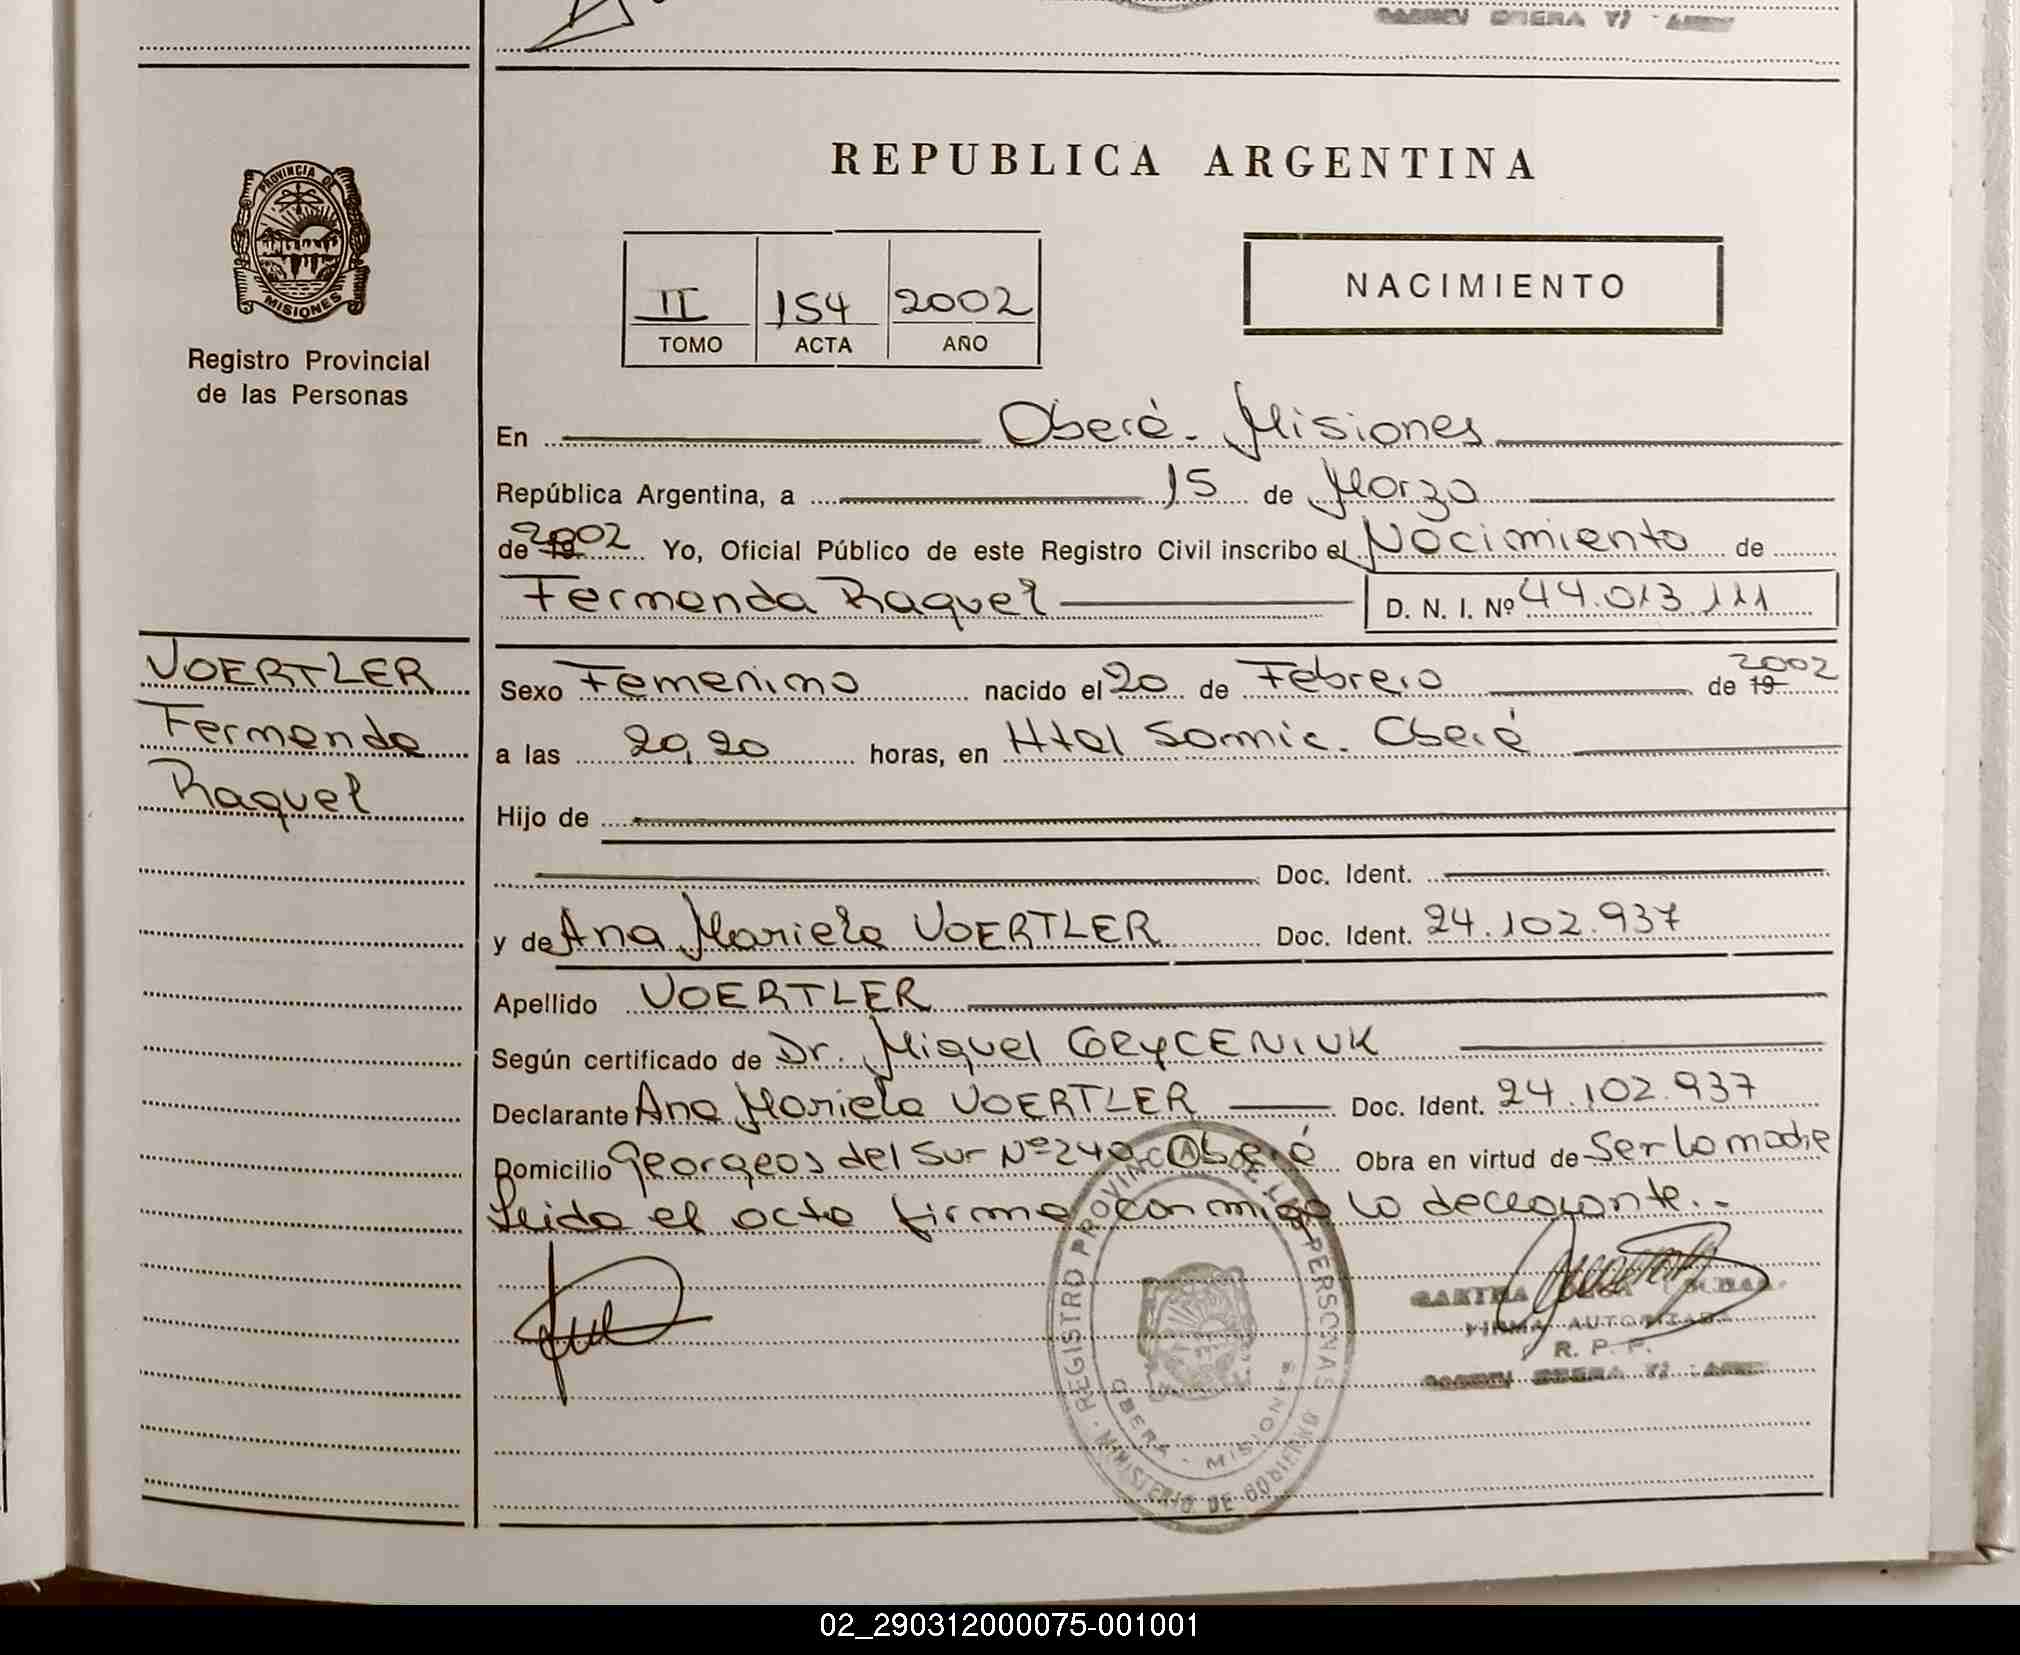 REPUBLICA ARGENTINA
PROVINCIA DE
MISIONES
Registro Provincial
de las Personas
NACIMIENTO
II 154 2002
TOMO ACTA AÑO
En Oberá. Misiones
República Argentina, a 15 de Marzo
de 19 2002 Yo, Oficial Público de este Registro Civil inscribo el Nacimiento de
Fernanda Raquel D. N. I. Nº 44.013.111
VOERTLER
Fernanda
Raquel
Sexo Femenino nacido el 20 de Febrero de 19 2002
a las 20,20 horas, en Htal Samic. Oberá
Hijo de
Doc. Ident.
y de Ana Mariela VOERTLER Doc. Ident. 24.102.937
Apellido VOERTLER
Según certificado de Dr. Miguel GRYCENIUK
Declarante Ana Mariela VOERTLER Doc. Ident. 24.102.937
Domicilio Georgeas del Sur Nº 240 Oberá Obra en virtud de Ser la madre
Leida el acta firma con migo la declarante.-
REGISTRO PROVINCIAL DE LAS PERSONAS
MINISTERIO DE GOBIERNO
OBERA - MISIONES
FIRMA AUTORIZADA
R. P. P.
02_290312000075-001001